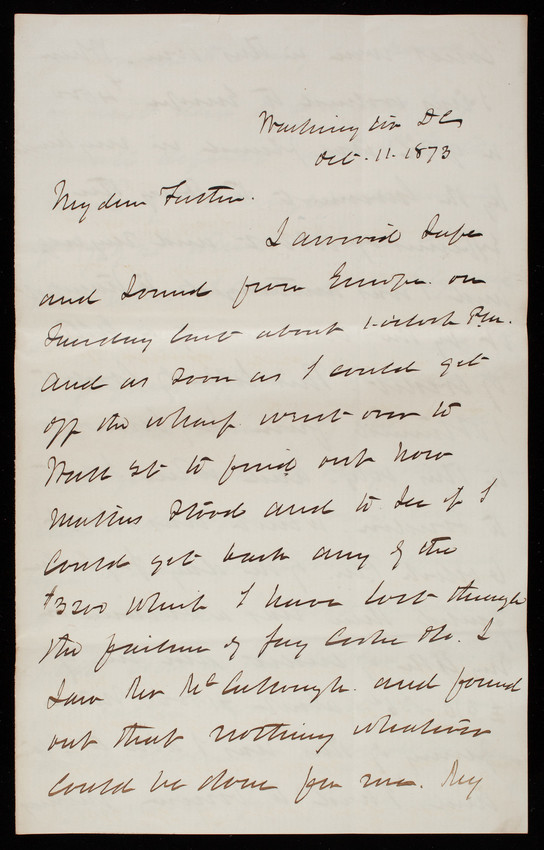 Washington DC
Oct. 11. 1873
My dear Foster.
I arrived safe
and sound from Europe on
Tuesday last about 1 oclock P.m.
and as soon as I could get
off the wharf went over to
Wall St to find out how
matters stood and to see if I
could get back any of the
$3200 which I have lost through
the failure of Jay Cooke &c. I
saw Mr McCullough and found
out that nothing whatever
could be done for me. My